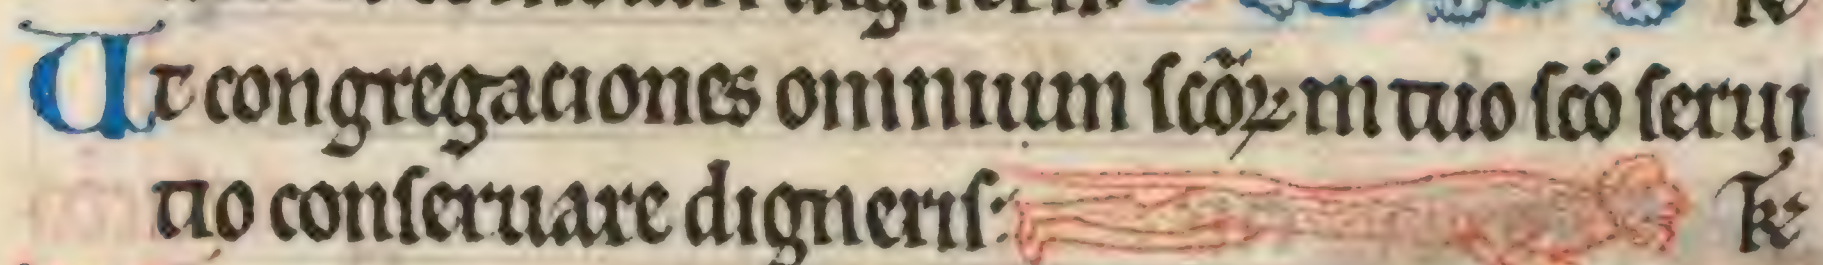 Ut congregaciones omnium scõꝝ in tuo scõ serui
tio conseruare digneris: k̃e